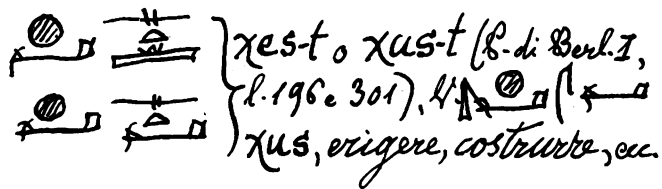 χes-t o χus-t (P. di Berl. I,
l. 196 e 301), V.
χus, erigere, costrurre, ecc.